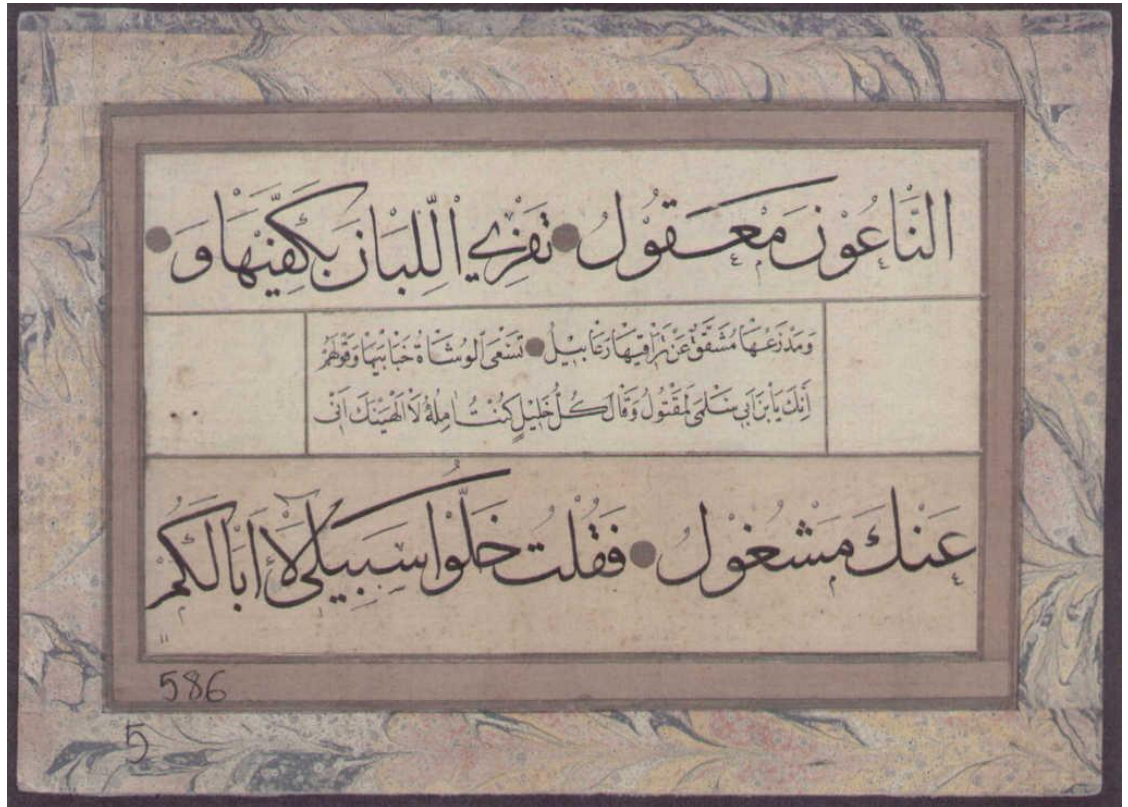 النَّاعُوْنَ مَعْقُوْلُ تَفْرِي اْللِّبَانَ بِكَفَّيْهَا وَ
وَمِدْرَعُهَا مُشَقَّقٌ عَنْ تَرَاقِيْهَا رَعَابِيْلُ تَسْعَى الوُشَاةُ جَنَابَيْهَا وَقَوْلُهُمْ
اِنَّكَ يَا بْنَ اَبِي سُلْمَى لَمَقْتُوْلُ وَقَالَ كُلُّ خَلِيْلٍ كُنْتُ اٰمِلُهُ لَا اُلْهِيَنَّكَ اِنِّى
عَنْكَ مَشْغُوْلُ فَقُلْتُ خَلُّوْا سَبِيْلِى لَا اَبَا لَكُمْ
١١
586
5